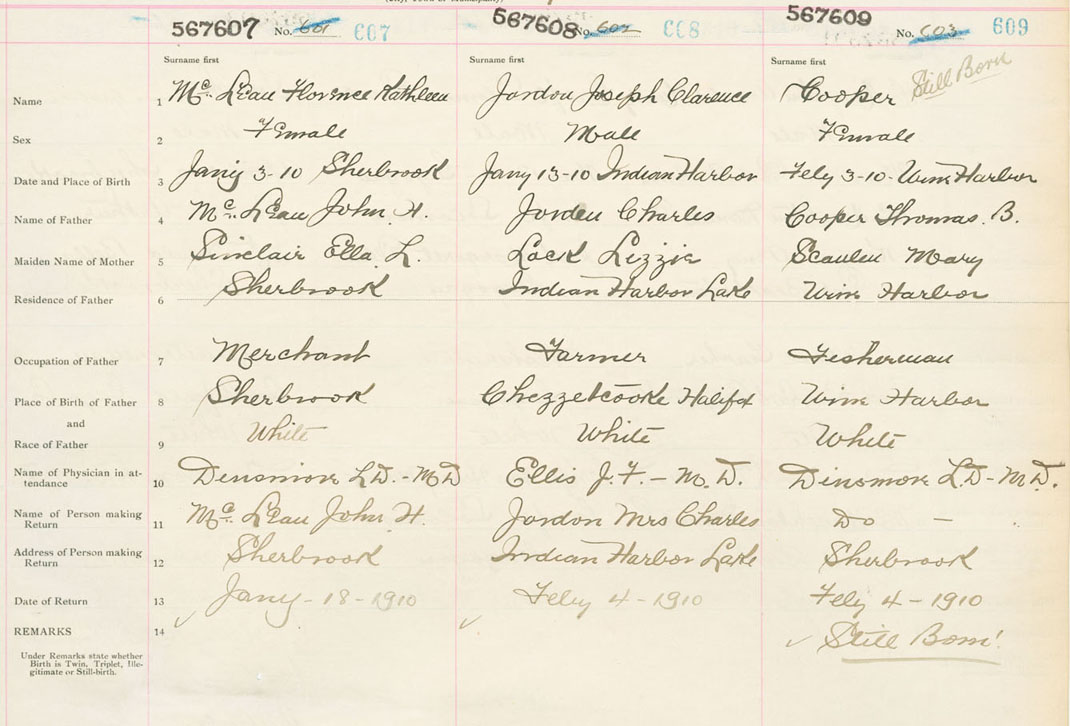 567607 No. 601 607 567608 No. 602 608 567609 No. 603 609
Surname first Surname first Surname first
Name 1 Mc. Lean Florence Kathleen Jordon Joseph Clarence Cooper Still Born
Sex 2 Female Male Female
Date and Place of Birth 3 Jany 3-10 Sherbrook Jany 13-10 Indian Harbor Feby 3-10- Wine Harbor
Name of Father 4 Mc. Lean John H. Jorden Charles Cooper Thomas. B.
Maiden Name of Mother 5 Sinclair Ella. L. Lock Lizzie Mary
Residence of Father 6 Sherbrook Indian Harbor Lake Wine Harbor
Occupation of Father 7 Merchant Farmer Fesherman
Place of Birth of Father 8 Sherbrook Chezzetcooke Halifax Wine Harbor
and
Race of Father 9 White White White
Name of Physician in at-
tendance 10 Densmore L.D. - M D Ellis J. F. - M. D. Dinsmore L D - M D.
Name of Person making
Return 11 Mc. Lean John H. Jordon Mrs Charles Do -
Address of Person making
Return 12 Sherbrook Indian Harbor Lake Sherbrook
Date of Return 13 Jany - 18 - 1910 Feby 4 - 1910 Feby 4 - 1910
REMARKS 14 Still Born!
Under Remarks state whether
Birth is Twin, Triplet, Ille-
gitimate or Still-birth.